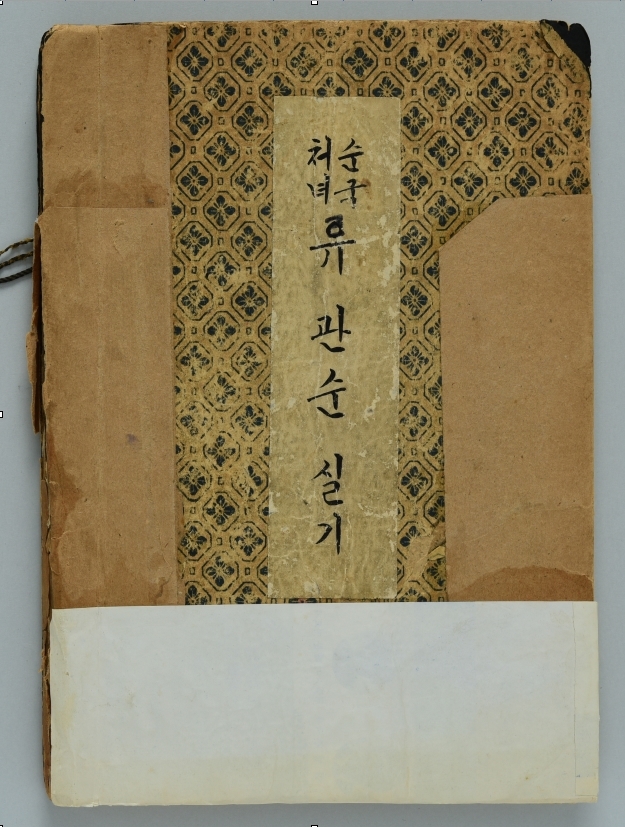 순국
처녀
류관순 실기